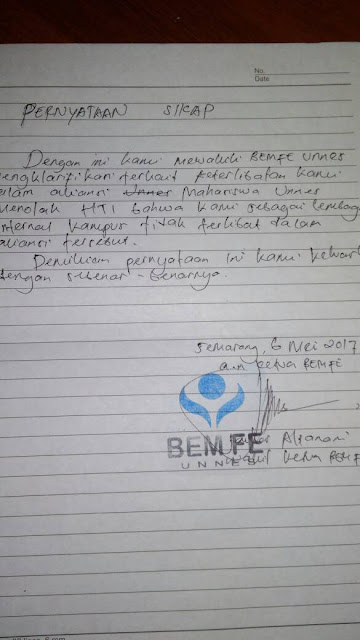 No.
Date
PERNYATAAN SIKAP
Dengan ini kami mewakili BEMFE UNNES
engklarifikasi terkait keterlibatan kami
alam aliansi Unnes Mahasiswa Unnes
Menolak HTI bahwa kami sebagai lembaga
internal kampus tidak terlibat dalam
aliansi tersebut.
Demikian pernyataan ini kami keluark
dengan sebenar-benarnya.
Semarang, 6 Mei 2017
a.n ketua BEMFE
BEM FE
UNNES
Alfanani
wakil ketua BEMFE